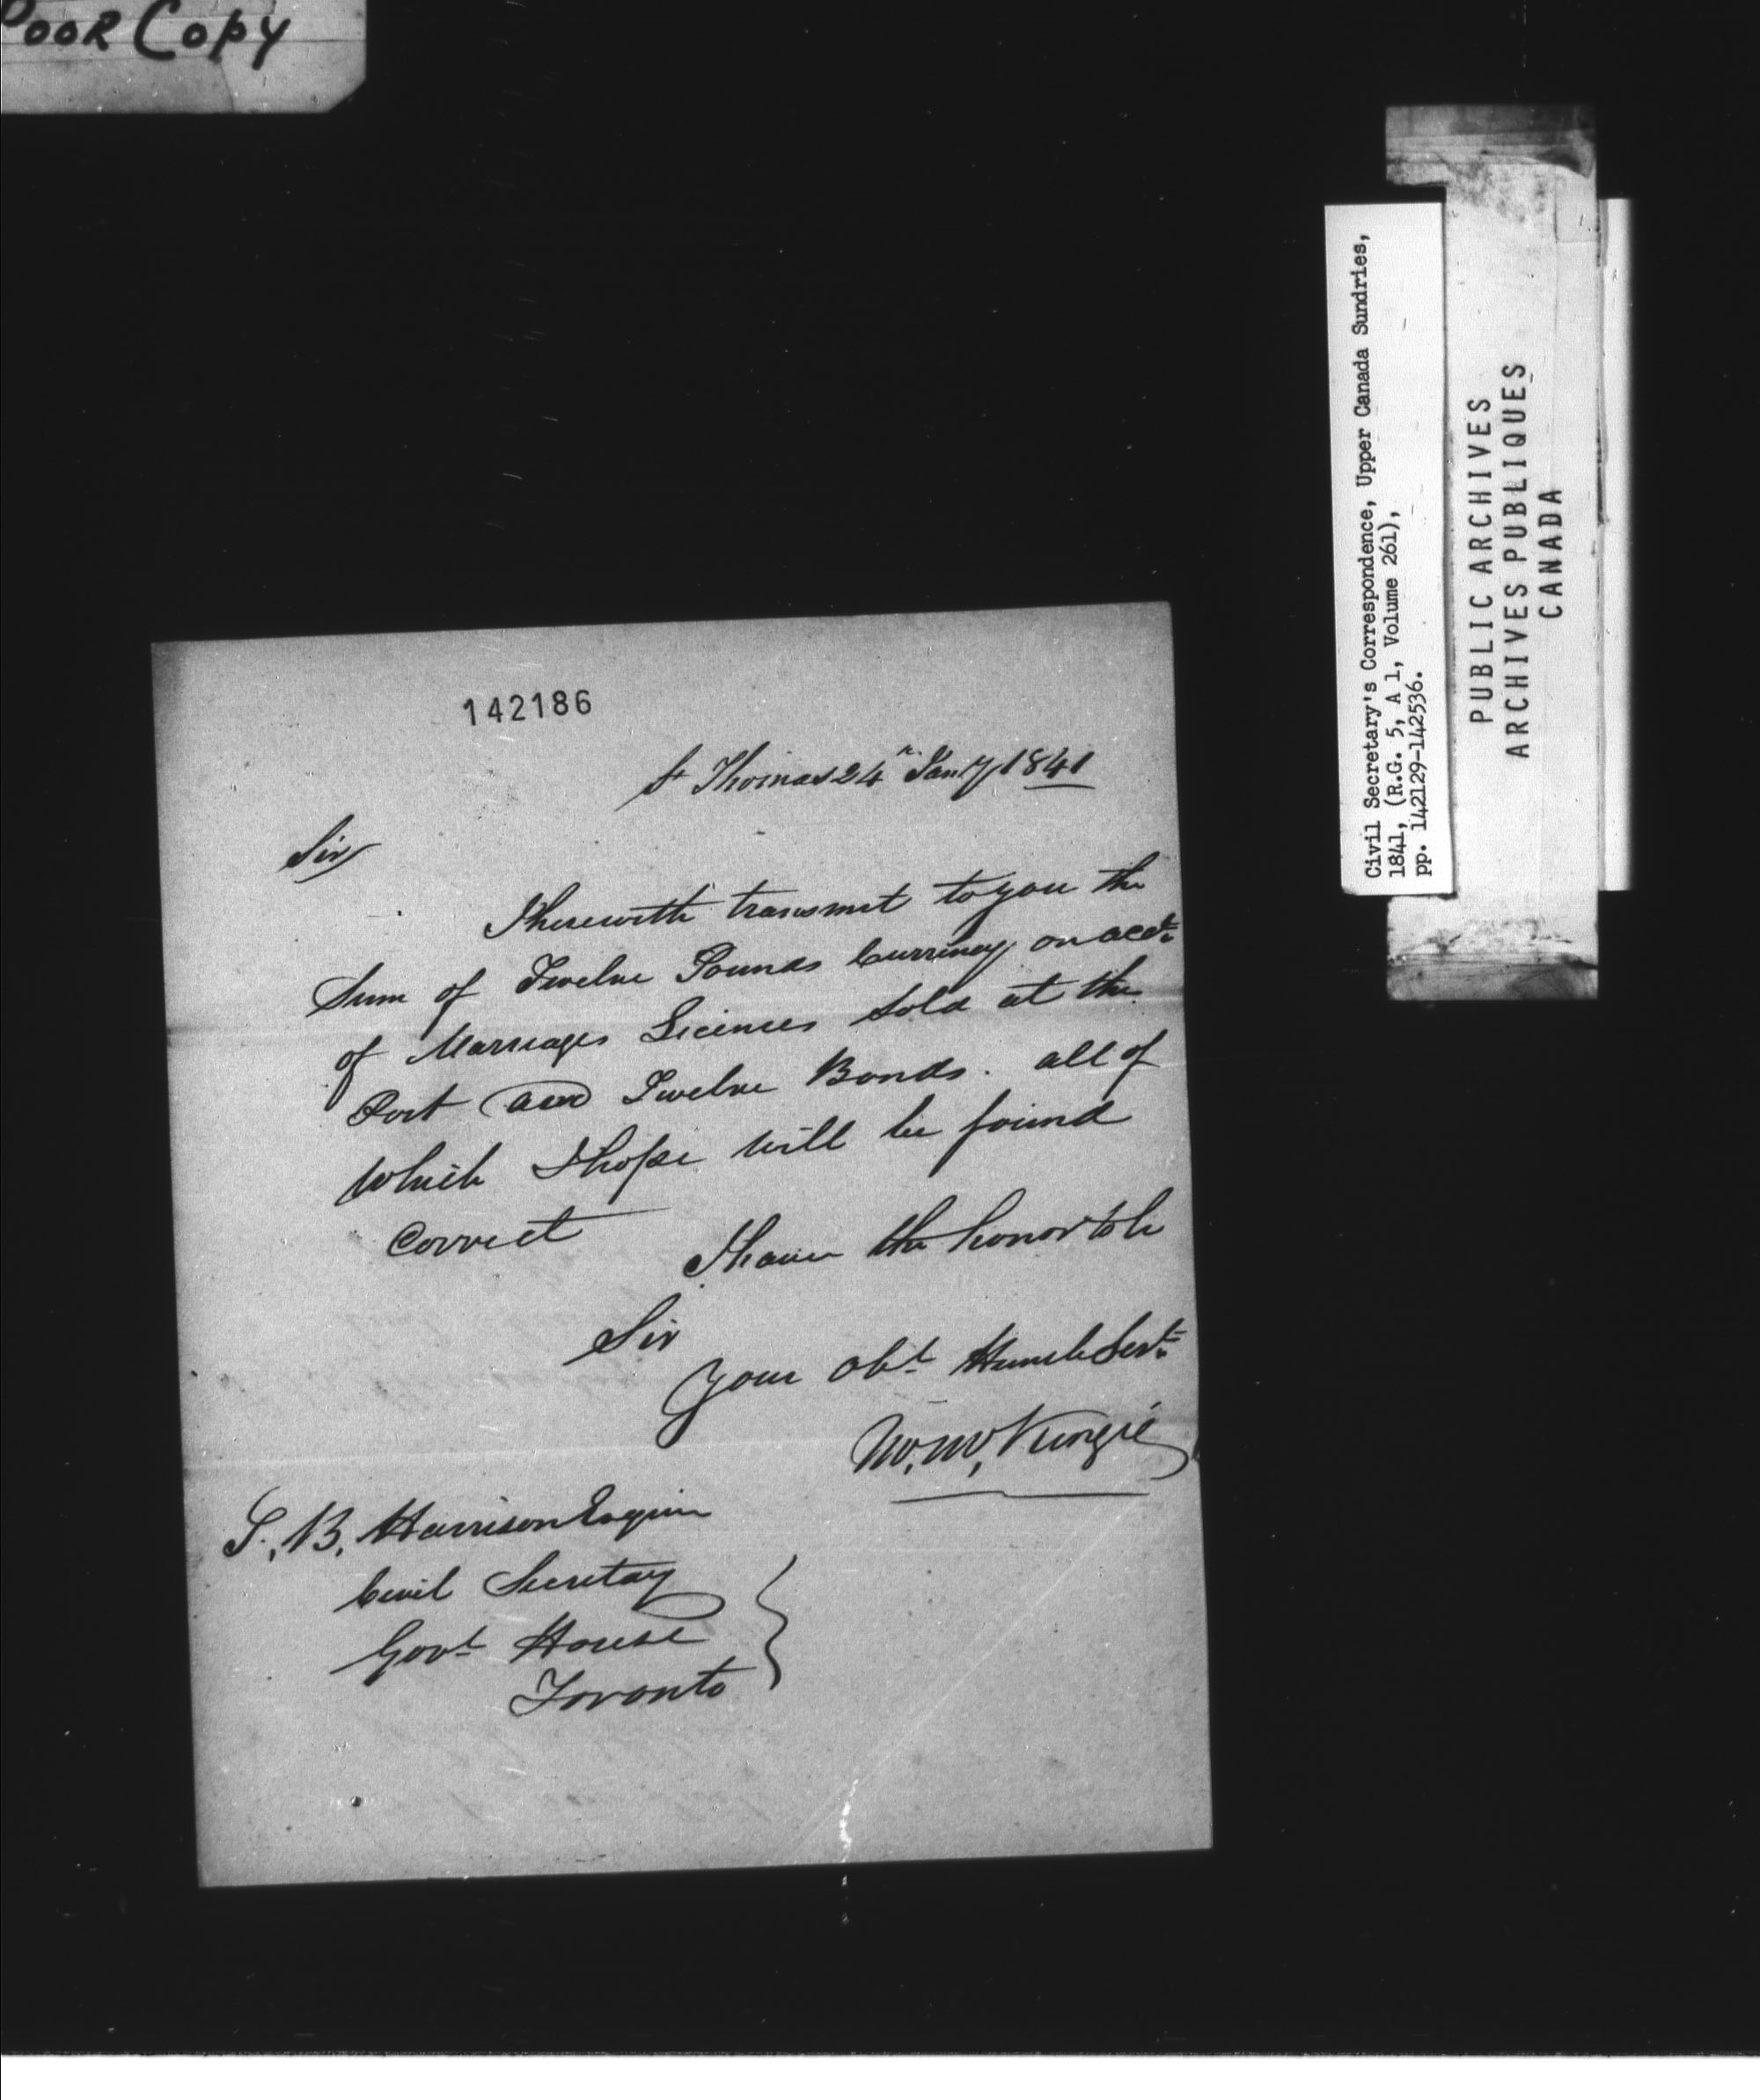 Poor Copy
142186
St Thomas 24th Jany 1841
Sir
I herewith transmit to you the
Sum of Twelve Pounds Currency on acct.
of Marriages Licences Sold at the
Port and Twelve Bonds. all of
which I hope will be found
Correct
I have the honor to be
Sir
Your Obt Humble Servt.
S. B. Harrison Esquire
Civil Secretay
Govt House
Toronto
Civil Secretary's Correspondence, Upper Canada Sundries,
1841, (R.G. 5, A 1, Volume 261),
pp. 142129-142536.
PUBLIC ARCHIVES
ARCHIVES PUBLIQUES
CANADA